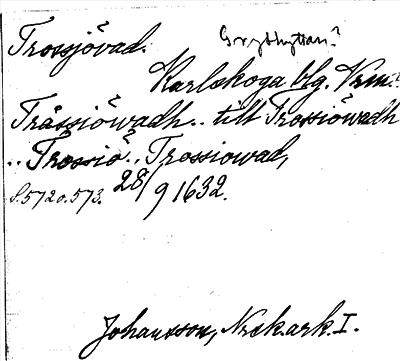 Trossjövad. Grythyttan?
Karlskoga blg. Vrm.
Trässiöwadh.. till Trossiöwadh
.. Trossiö.. Trossiowad,
S. 572 o. 573. 28/9 1632.
Johansson, Nrsk. ark. I.